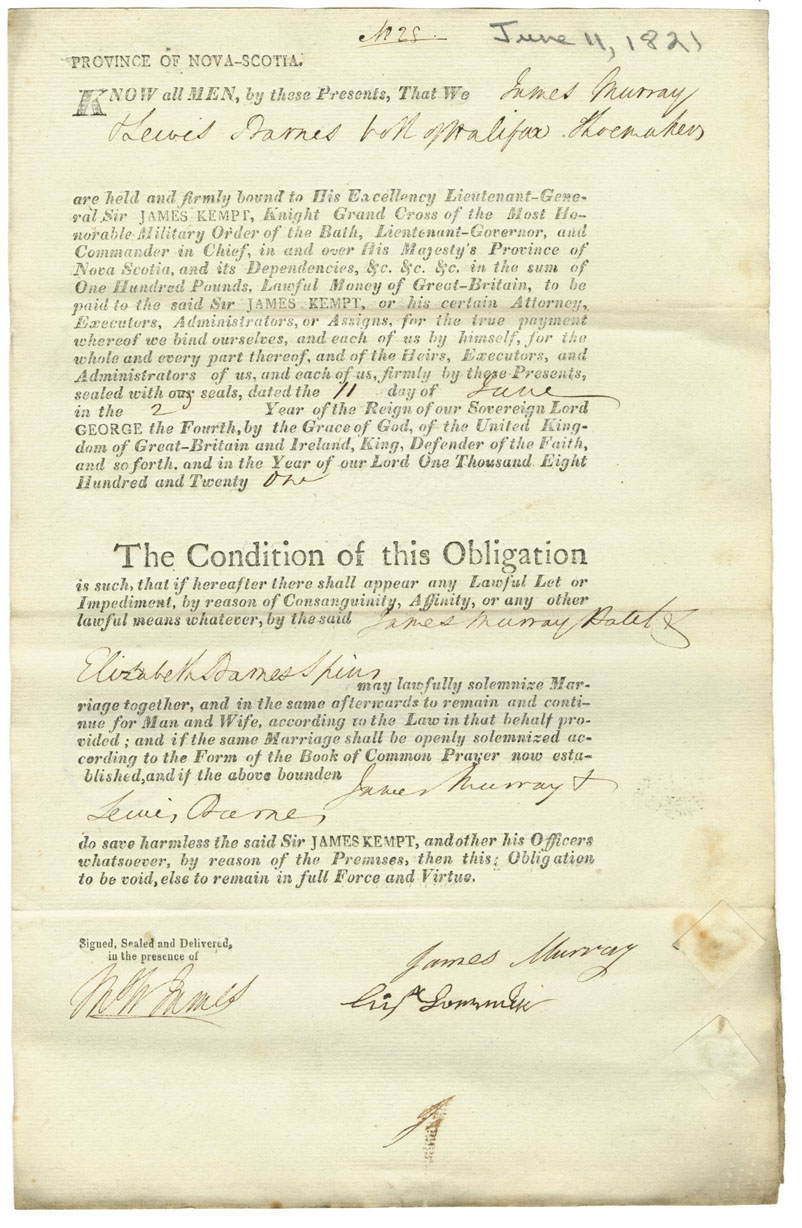 No 28
June 11, 1821
PROVINCE OF NOVA-SCOTIA.
KNOW all MEN, by these Presents, That We James Murray
& Lewis Barnes both of Halifax Shoemakers
are held and firmly bound to His Excellency Lieutenant-Gene-
ral Sir JAMES KEMPT, Knight Grand Cross of the Most Ho-
norable Military Order of the Bath, Lieutenant-Governor, and
Commander in Chief, in and over His Majesty's Province of
Nova Scotia, and its Dependencies, &c. &c. &c. in the sum of
One Hundred Pounds, Lawful Money of Great-Britain, to be
paid to the said Sir JAMES KEMPT, or his certain Attorney,
Executors, Administrators, or Assigns, for the true payment
whereof we bind ourselves, and each of us by himself, for the
whole and every part thereof, and of the Heirs, Executors, and
Administrators of us, and each of us, firmly by these Presents,
sealed with our seals, dated the 11 day of June
in the 2d Year of the Reign of our Sovereign Lord
GEORGE the Fourth, by the Grace of God, of the United King-
dom of Great-Britain and Ireland, King, Defender of the Faith,
and so forth, and in the Year of our Lord One Thousand Eight
Hundred and Twenty one
The Condition of this Obligation
is such, that if hereafter there shall appear any Lawful Let or
Impediment, by reason of Consanguinity, Affinity, or any other
lawful means whatever, by the said James Murray Batch &
Elizabeth Barnes Spinr
may lawfully solemnize Mar-
riage together, and in the same afterwards to remain and conti-
nue for Man and Wife, according to the Law in that behalf pro-
vided; and if the same Marriage shall be openly solemnized ac-
cording to the Form of the Book of Common Prayer now esta-
blished, and if the above bounden James Murray &
Lewis Barnes
do save harmless the said Sir JAMES KEMPT, and other his Officers
whatsoever, by reason of the Premises, then this Obligation
to be void, else to remain in full Force and Virtue.
Signed, Sealed and Delivered,
in the presence of
James Murray
James